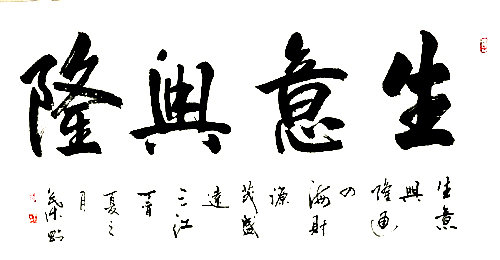 生意興隆
生意興隆通四海財源茂盛達三江
夏之月